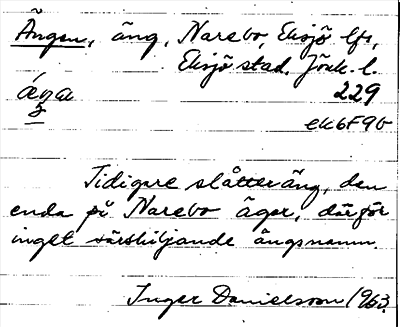 Ängen, äng, Narebo, Eksjö lfs,
Eksjö stad. Jönk. l.
229
ek6F9b
Tidigare slåtteräng, den
enda på Narebo ägor, därför
inget särskiljande ängsnamn.
Inger Danielsson 1963.